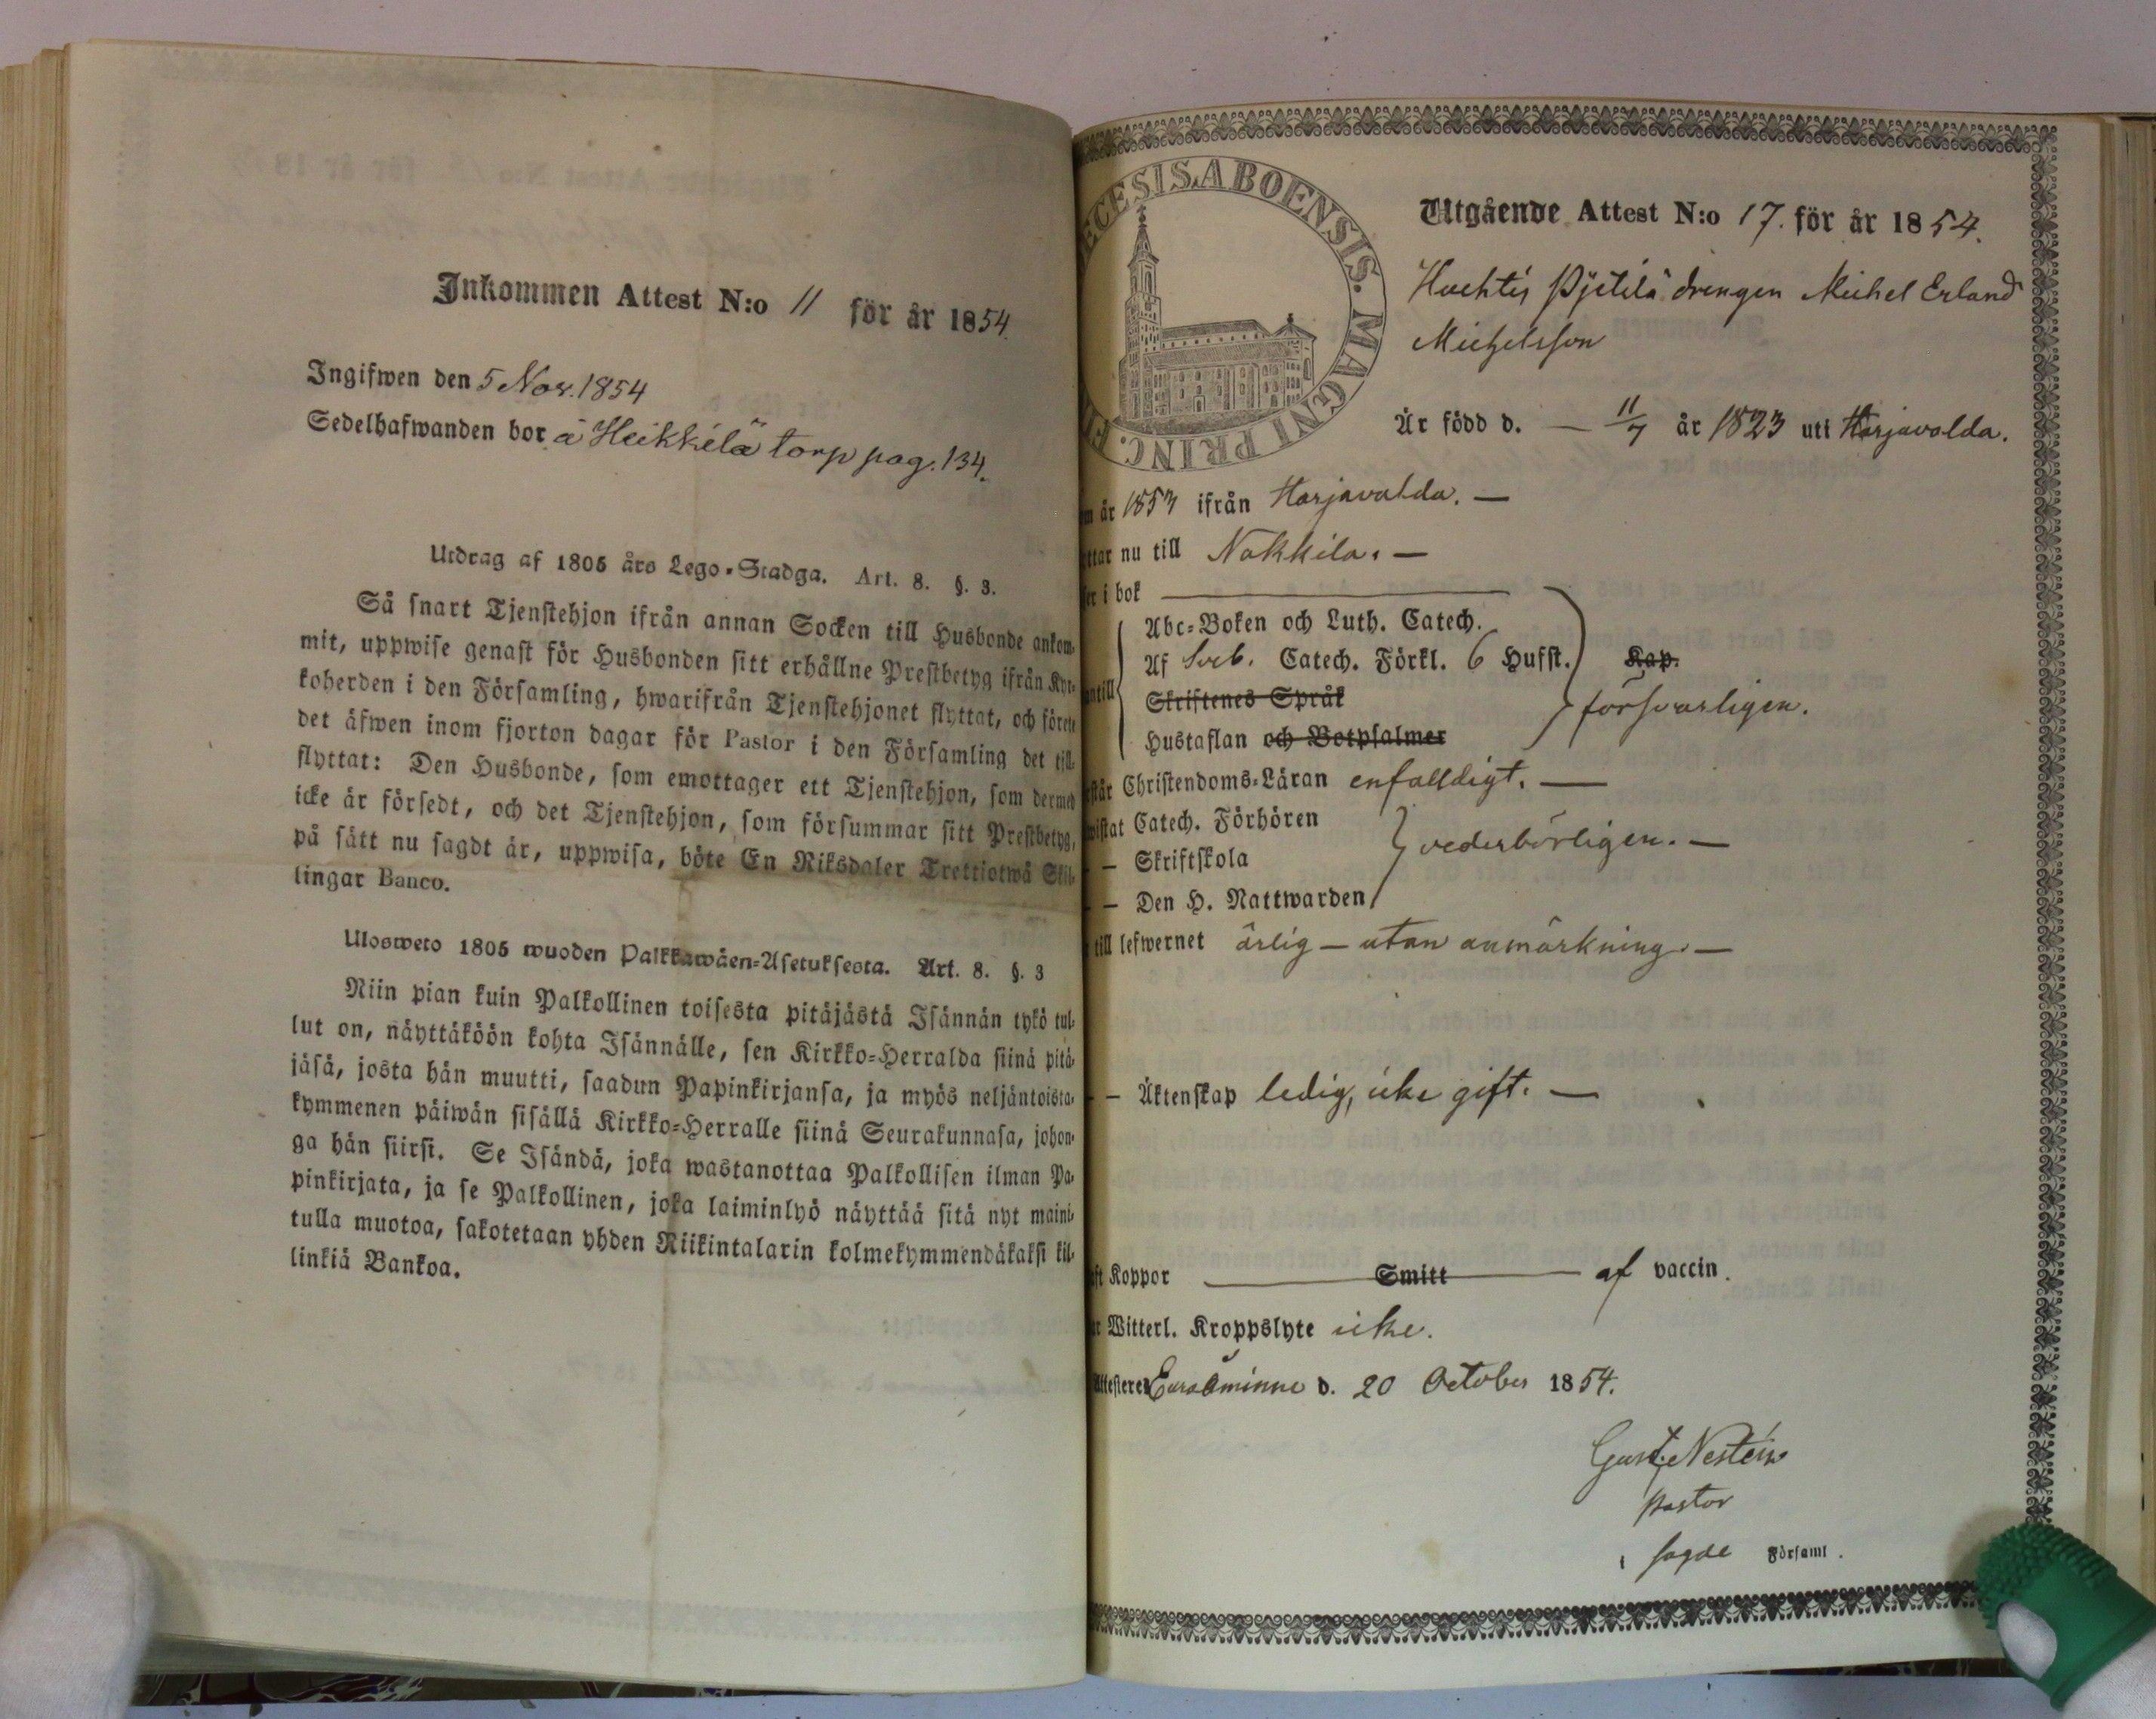 Inkommen Attest N:o 11 för år 1854.
Ingifwen den 5 Nov. 1854
Sedelhafwanden bor å Heikkilä torp pag. 134.
Utdrag af 1805 års Lego-Stadga. Art. 8. §. 3.
Så snart Tjenstehjon ifrån annan Socken till Husbonde ankom-
mit, uppwise genast för Husbonden sitt erhållne Prestbetyg ifrån Kyr-
koherden i den Församling, hwarifrån Tjenstehjonet flyttat, och förete
det äfwen inom fjorton dagar för Pastor i den Församling det till-
flyttat: Den Husbonde, som emottager ett Tjenstehjon, som dermed
icke är försedt, och det Tjenstehjon, som försummar sitt Prestbetyg,
på sätt nu sagdt är, uppwisa, böte En Riksdaler Trettiotwå Skil-
lingar Banco.
Ulosweto 1805 wuoden Palkkawäen-Asetuksesta. Art. 8. §. 3
Niin pian kuin Palkollinen toisesta pitäjästä Isännän tykö tul-
lut on, näyttäköön kohta Isännälle, sen Kirkko-Herralda siinä pitä-
jäsä, josta hän muutti, saadun Papinkirjansa, ja myös neljäntoista-
kymmenen päiwän sisällä Kirkko-Herralle siinä Seurakunnasa, johon-
ga hän siirsi. Se Isändä, joka wastanottaa Palkollisen ilman Pa-
pinkirjata, ja se Palkollinen, joka laiminlyö näyttää sitä nyt maini-
tulla muotoa, sakotetaan yhden Riikintalarin kolmekymmendäkaksi kil-
linkiä Bankoa.
ECESIS. ABOENSIS. MAGNI PRINC. FI
Utgående Attest N:o 17. för år 1854.
Pjetilä drengen Michel Erland
Michelsson
Är född d. — 11/7 år 1823 uti Harjavalda.
år 1853 ifrån Harjavalda. —
ttar nu till Nakkila. —
i bok
Abc-Boken och Luth. Catech.
Af Sveb. Catech. Förkl. 6 Hufst. Kap.
Skriftenes Språk försvarligen.
Hustaflan och Botpsalmer
antill
står Christendoms-Läran enfalldigt. —
wistat Catech. Förhören
— Skriftskola vederbörligen. —
— Den H. Nattwarden
till lefwernet ärlig — utan anmärkning. —
— Äktenskap ledig, icke gift. —
ft Koppor Smitt af vaccin.
Witterl. Kroppslyte icke.
Attesteres Euraåminne d. 20 October 1854.
Gust. Nestén
Pastor
i sagde Församl.